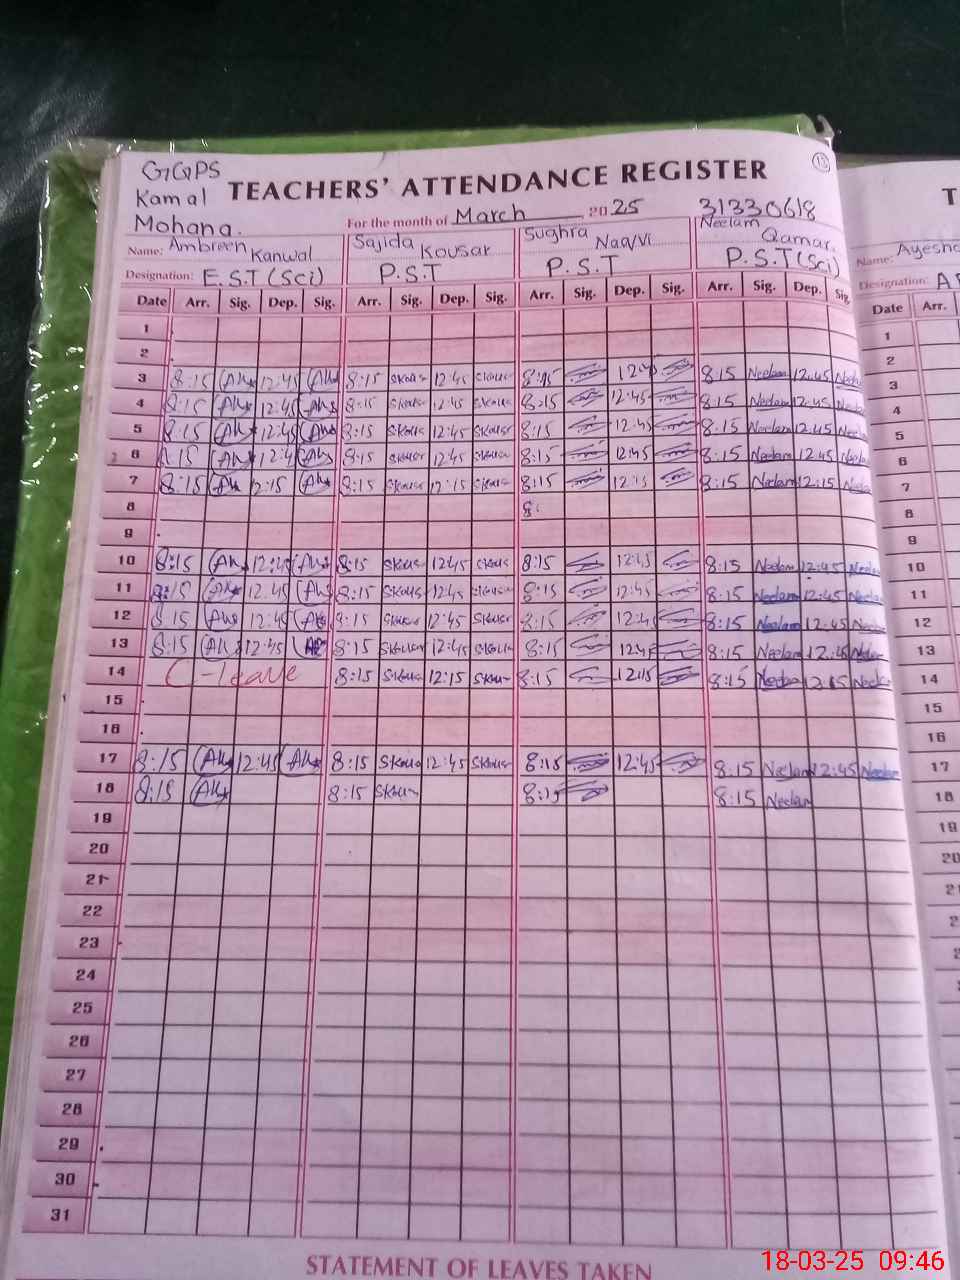 GGPS
Kamal
Mohana.
TEACHERS' ATTENDANCE REGISTER
13
For the month of March 2025
31330618
Name: Ambreen Kanwal Sajida Kousar Sughra Naqvi Neelam Qamar.
Designation: E.S.T (Sci) P.S.T P.S.T P.S.T (Sci)
Date Arr. Sig. Dep. Sig. Arr. Sig. Dep. Sig. Arr. Sig. Dep. Sig. Arr. Sig. Dep. Sig.
1
2
3 8:15 12:45 8:15 SKousr 12:45 SKousr 8:15 12:45 8:15 Neelam 12:45 Neelam
4 8:15 12:45 8:15 SKousr 12:45 SKousr 8:15 12:45 8:15 Neelam 12:45 Neelam
5 8:15 12:45 8:15 SKousr 12:45 SKousr 8:15 12:45 8:15 Neelam 12:45 Neelam
6 8:15 12:45 8:15 SKousr 12:45 SKousr 8:15 12:45 8:15 Neelam 12:45 Neelam
7 8:15 12:15 8:15 SKousr 12:15 SKousr 8:15 12:15 8:15 Neelam 12:15 Neelam
8 8:
9
10 8:15 12:45 8:15 SKousr 12:45 SKousr 8:15 12:45 8:15 Neelam 12:45 Neelam
11 8:15 12:45 8:15 SKousr 12:45 SKousr 8:15 12:45 8:15 Neelam 12:45 Neelam
12 8:15 12:45 8:15 SKousr 12:45 SKousr 8:15 12:45 8:15 Neelam 12:45 Neelam
13 8:15 12:45 8:15 SKousr 12:45 SKousr 8:15 12:45 8:15 Neelam 12:45 Neelam
14 C-leave 8:15 SKousr 12:15 SKousr 8:15 12:15 8:15 Neelam 12:15 Neelam
15
16
17 8:15 12:45 8:15 SKousr 12:45 SKousr 8:15 12:45 8:15 Neelam 12:45 Neelam
18 8:15 8:15 SKousr 8:15 8:15 Neelam
19
20
21
22
23
24
25
26
27
28
29
30
31
STATEMENT OF LEAVES TAKEN
T
Name: Ayesha
Designation: A
Date Arr.
1
2
3
4
5
6
7
8
9
10
11
12
13
14
15
16
17
18
19
20
18-03-25 09:46